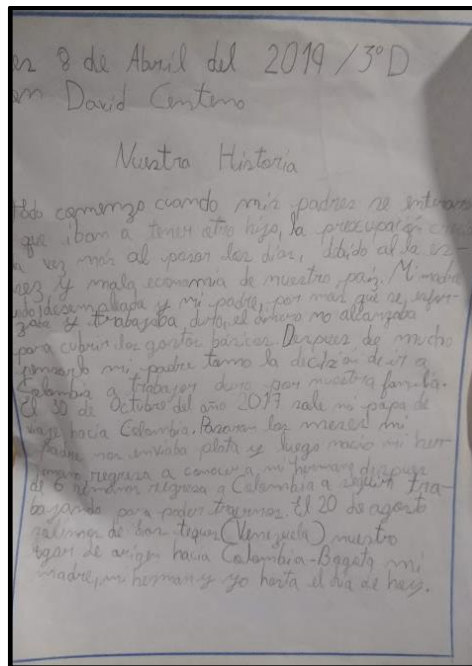 es 8 de Abril del 2019 / 3°D
on David Centeno
Nuestra Historia
todo comenzo cuando mis padres se enteraron
que iban a tener otro hijo, la preocupación
a vez más al pasar los días, debido al la es-
sez y mala economia de nuestro país. Mi madre
desempleada y mi padre, por más que se esfor-
zaba y trabajaba duro, el dinero no alcanzaba
para cubrir los gastos básicos. Despues de mucho
pensarlo mi padre tomo la decisión de ir a
Colombia a trabajar duro por nuestra familia.
El 30 de Octubre del año 2017 sale mi papa de
viaje hacia Colombia. Pasaron los meses mi
Padre nos enviaba plata y luego nacio mi her-
regresa a conocer a mi hermano despues
de 6 semanas regresa a Colombia a seguir tra-
bajando para poder traernos. El 20 de agosto
salimos de (Venezuela) nuestro
lugar de origen hacia Colombia-Bogota mi
madre, mi herman y yo hasta el día de hoy.